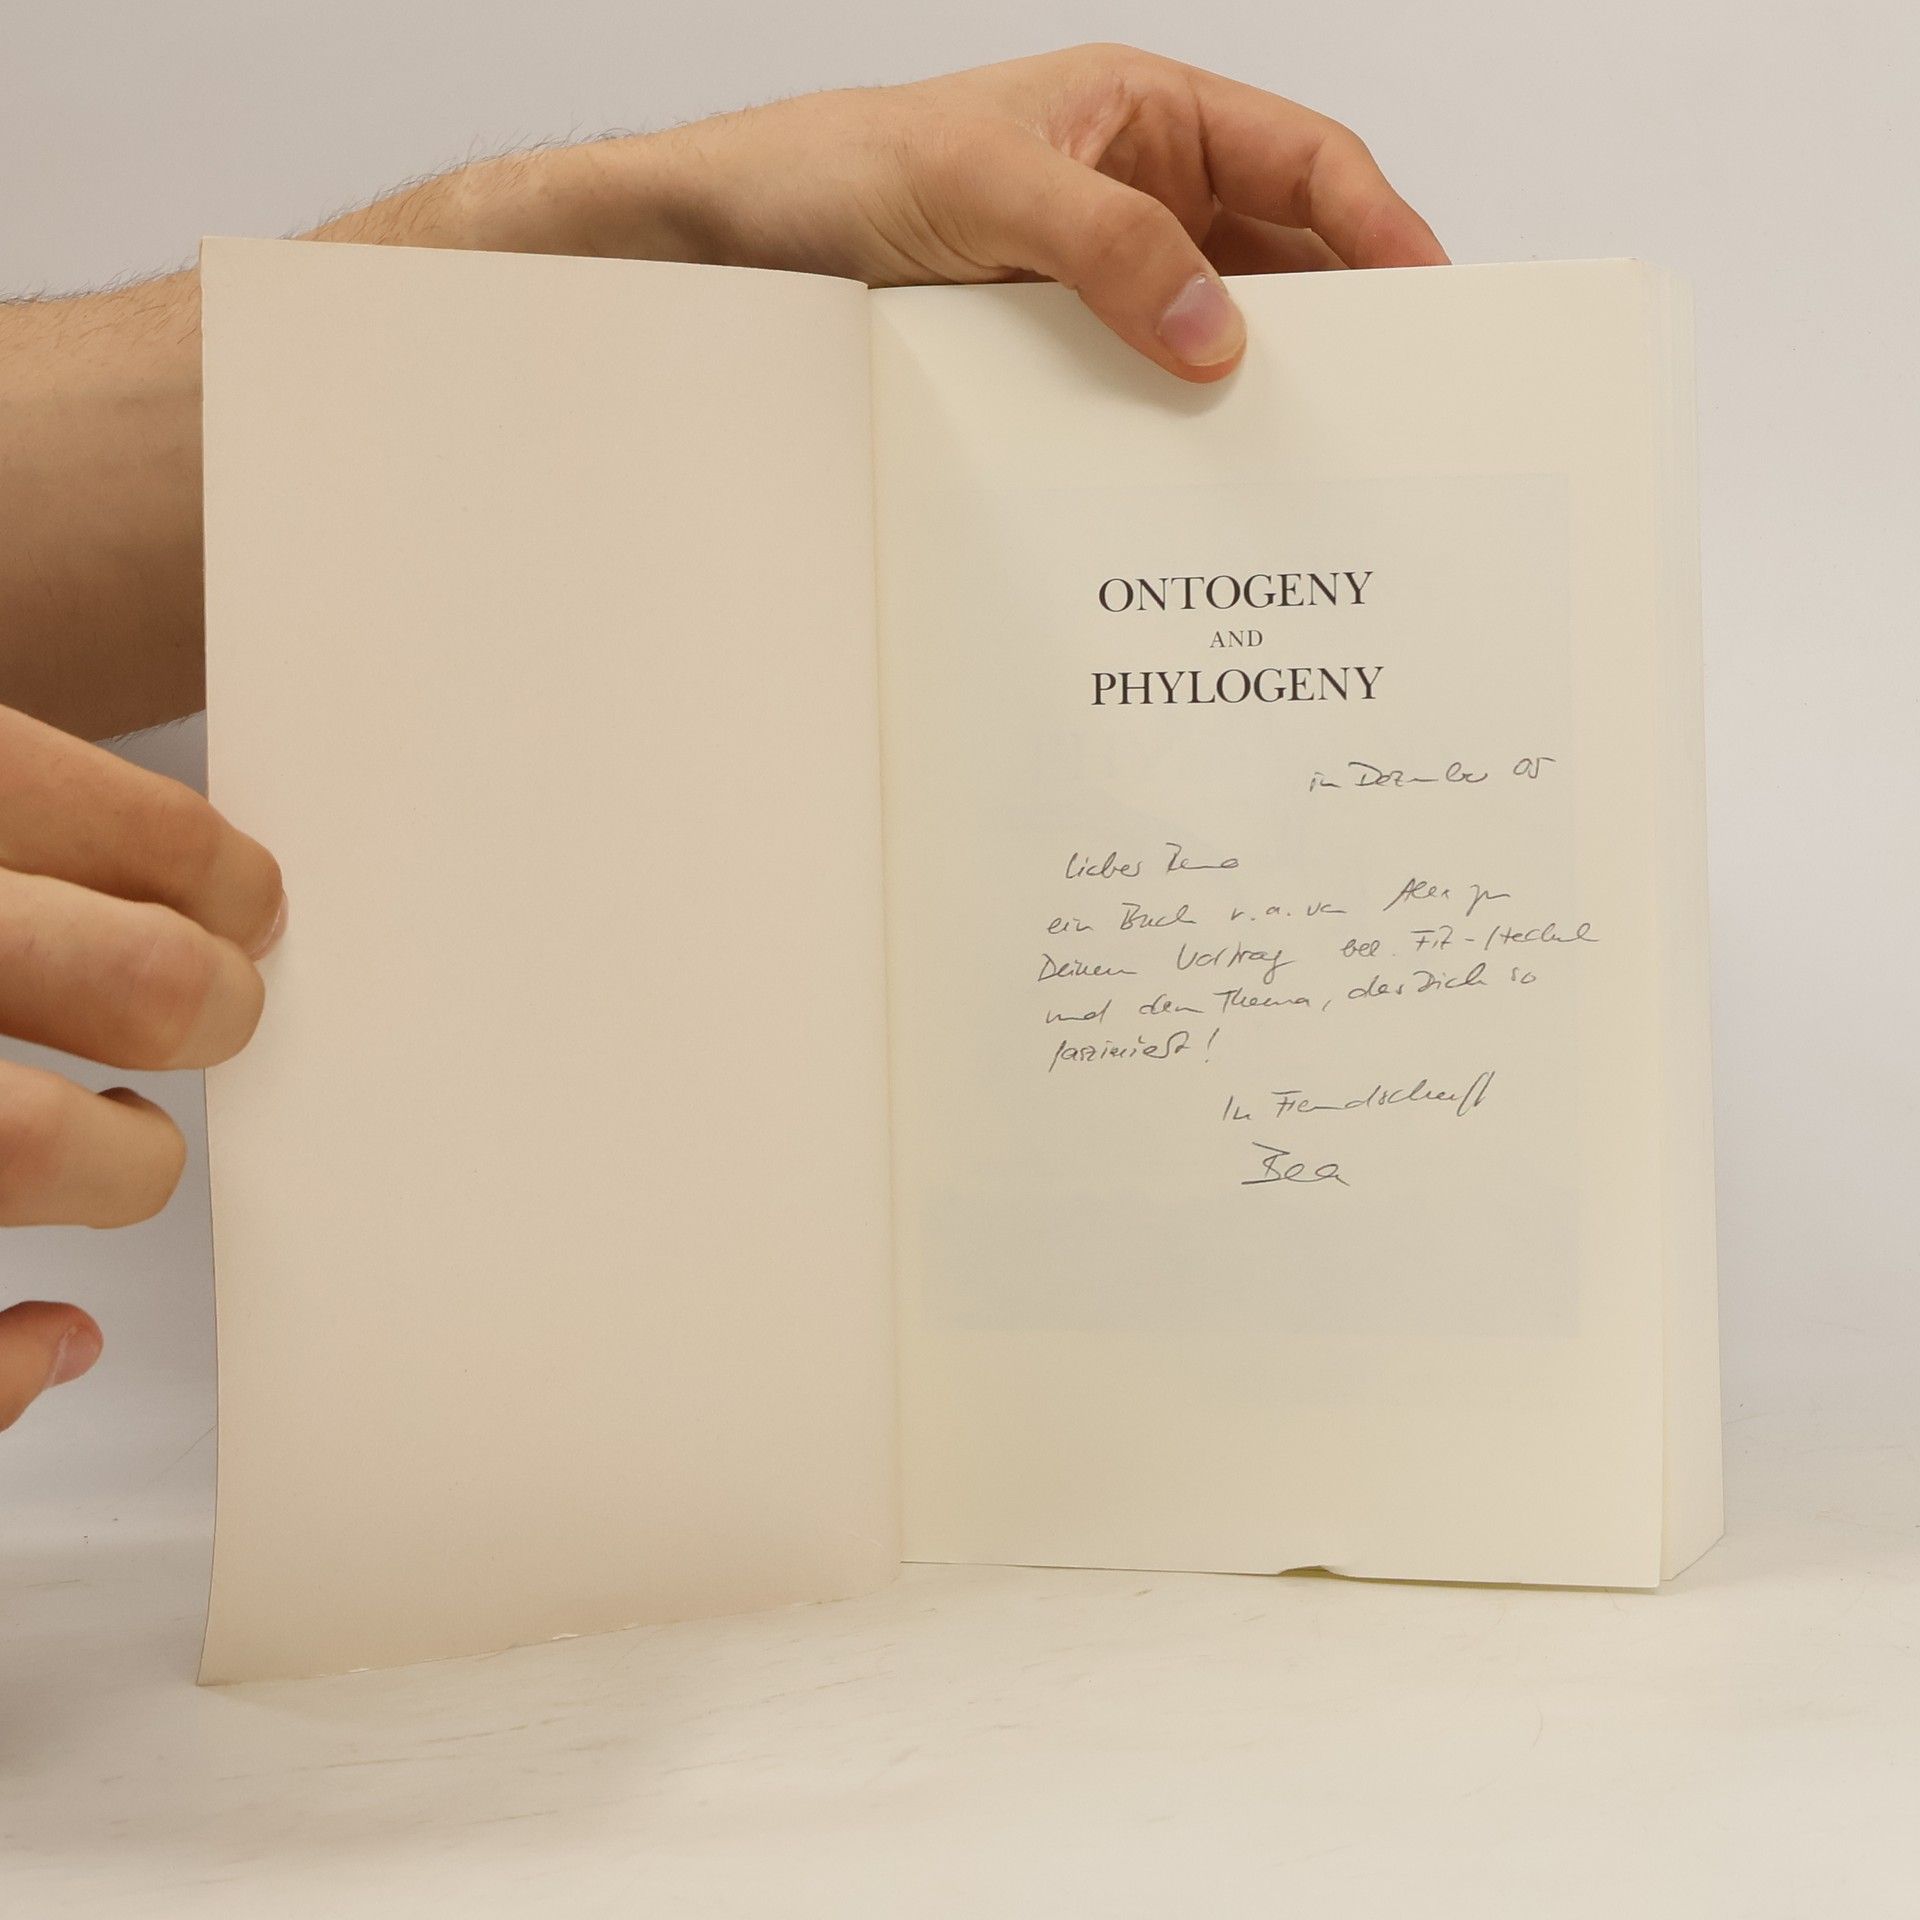 ONTOGENY
AND
PHYLOGENY
in Dezember 05
Lieber Beno
ein Buch v. a. von Alex zu
Deinem Vortrag
und dem Thema, das Dich so
fasziniert!
In Freundschaft
Bea